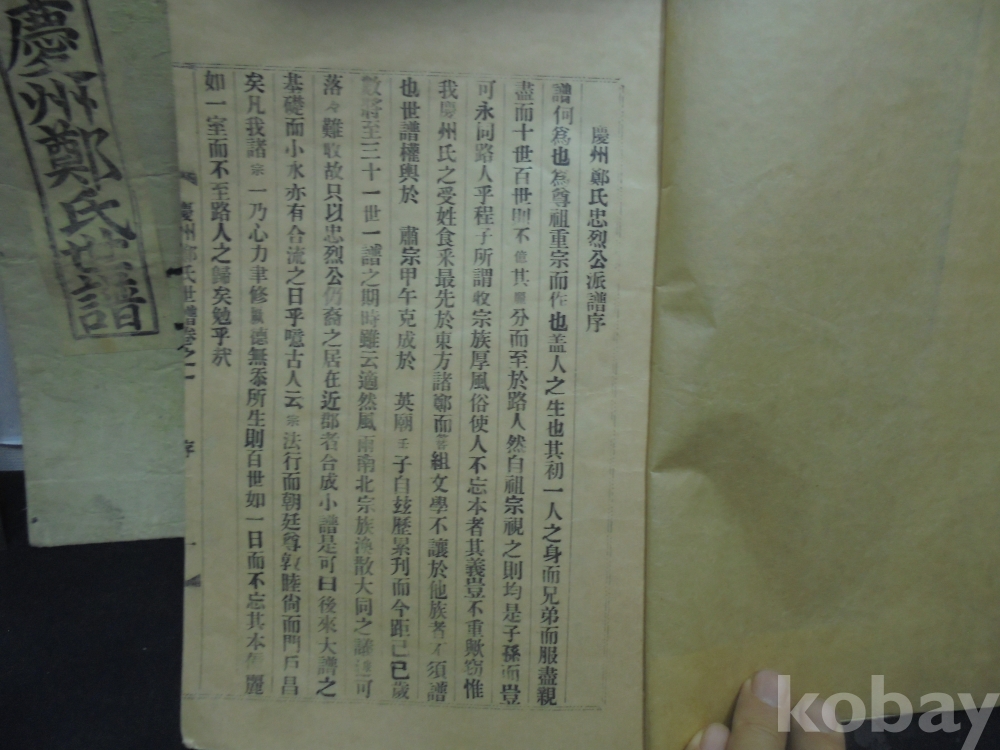 慶州鄭氏忠烈公派譜序
譜何爲也爲尊祖重宗而作也盖人之生也其初一人之身而兄弟而服盡親
盡而十世百世則不億其麗分而至於路人然自祖宗視之則均是子孫而豈
可永同路人乎程子所謂收宗族厚風俗使人不忘本者其義豈不重歟窃惟
我慶州氏之受姓食采最先於東方諸鄭而簪組文學不讓於他族者不須譜
也世譜權輿於 肅宗甲午克成於 英廟壬子自玆歷累刊而今距己巳歲
數將至三十一世一譜之期時雖云適然風雨南北宗族渙散大同之議 可
落々難收故只以忠烈公仍裔之居在近郡者合成小譜是可曰後來大譜之
基礎而小水亦有合流之日乎噫古人云宗法行而朝廷尊敦睦尙而門戶昌
矣凡我諸宗一乃心力聿修厥德無忝所生則百世如一日而不忘其本 麗
如一室而不至路人之歸矣勉乎哉
慶州鄭氏世譜卷之一 序 一
慶州鄭氏世譜
kobay